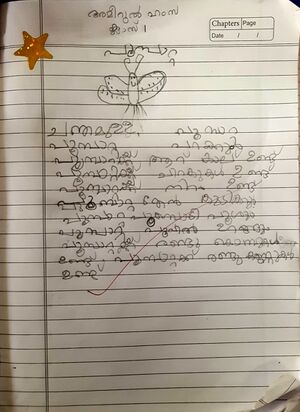 അമീറുൽ ഹംസ
ക്ലാസ് 1
Chapters Page
Date / /
പൂമ്പാറ്റ
ചന്തമുള്ള പൂമ്പാറ്റ
പൂമ്പാറ്റ പറക്കും
പൂമ്പാറ്റയ്ക്ക് ആറ് കാല് ഉണ്ട്
പൂമ്പാറ്റയ്ക്ക് ചിറകുകൾ ഉണ്ട്
പൂമ്പാറ്റയ്ക്ക് നിറം ഉണ്ട്
പൂമ്പാറ്റ തേൻ കുടിക്കും
പൂമ്പാറ്റ
പൂമ്പാറ്റ പൂവിൽ ഇരുന്നു
പൂമ്പാറ്റയ്ക്ക് രണ്ടു കൊമ്പുകൾ
ഉണ്ട് പൂമ്പാറ്റക്ക് രണ്ടു കണ്ണുകൾ
ഉണ്ട്